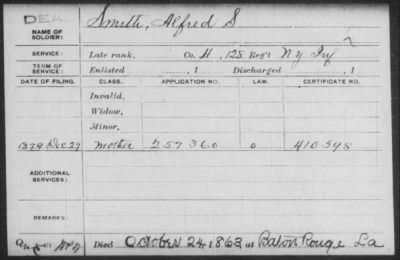 DEAD
Smith, Alfred S
NAME OF SOLDIER:
SERVICE: Late rank, Co. H, 128 Reg't N.Y. Inf
TERM OF SERVICE: Enlisted , 1 Discharged , 1
DATE OF FILING. CLASS. APPLICATION NO. LAW. CERTIFICATE NO.
Invalid,
Widow,
Minor,
1879 Dec. 27 Mother 257360 0 410598
ADDITIONAL SERVICES:
REMARKS:
Died October 24, 1863, at Baton Rouge La